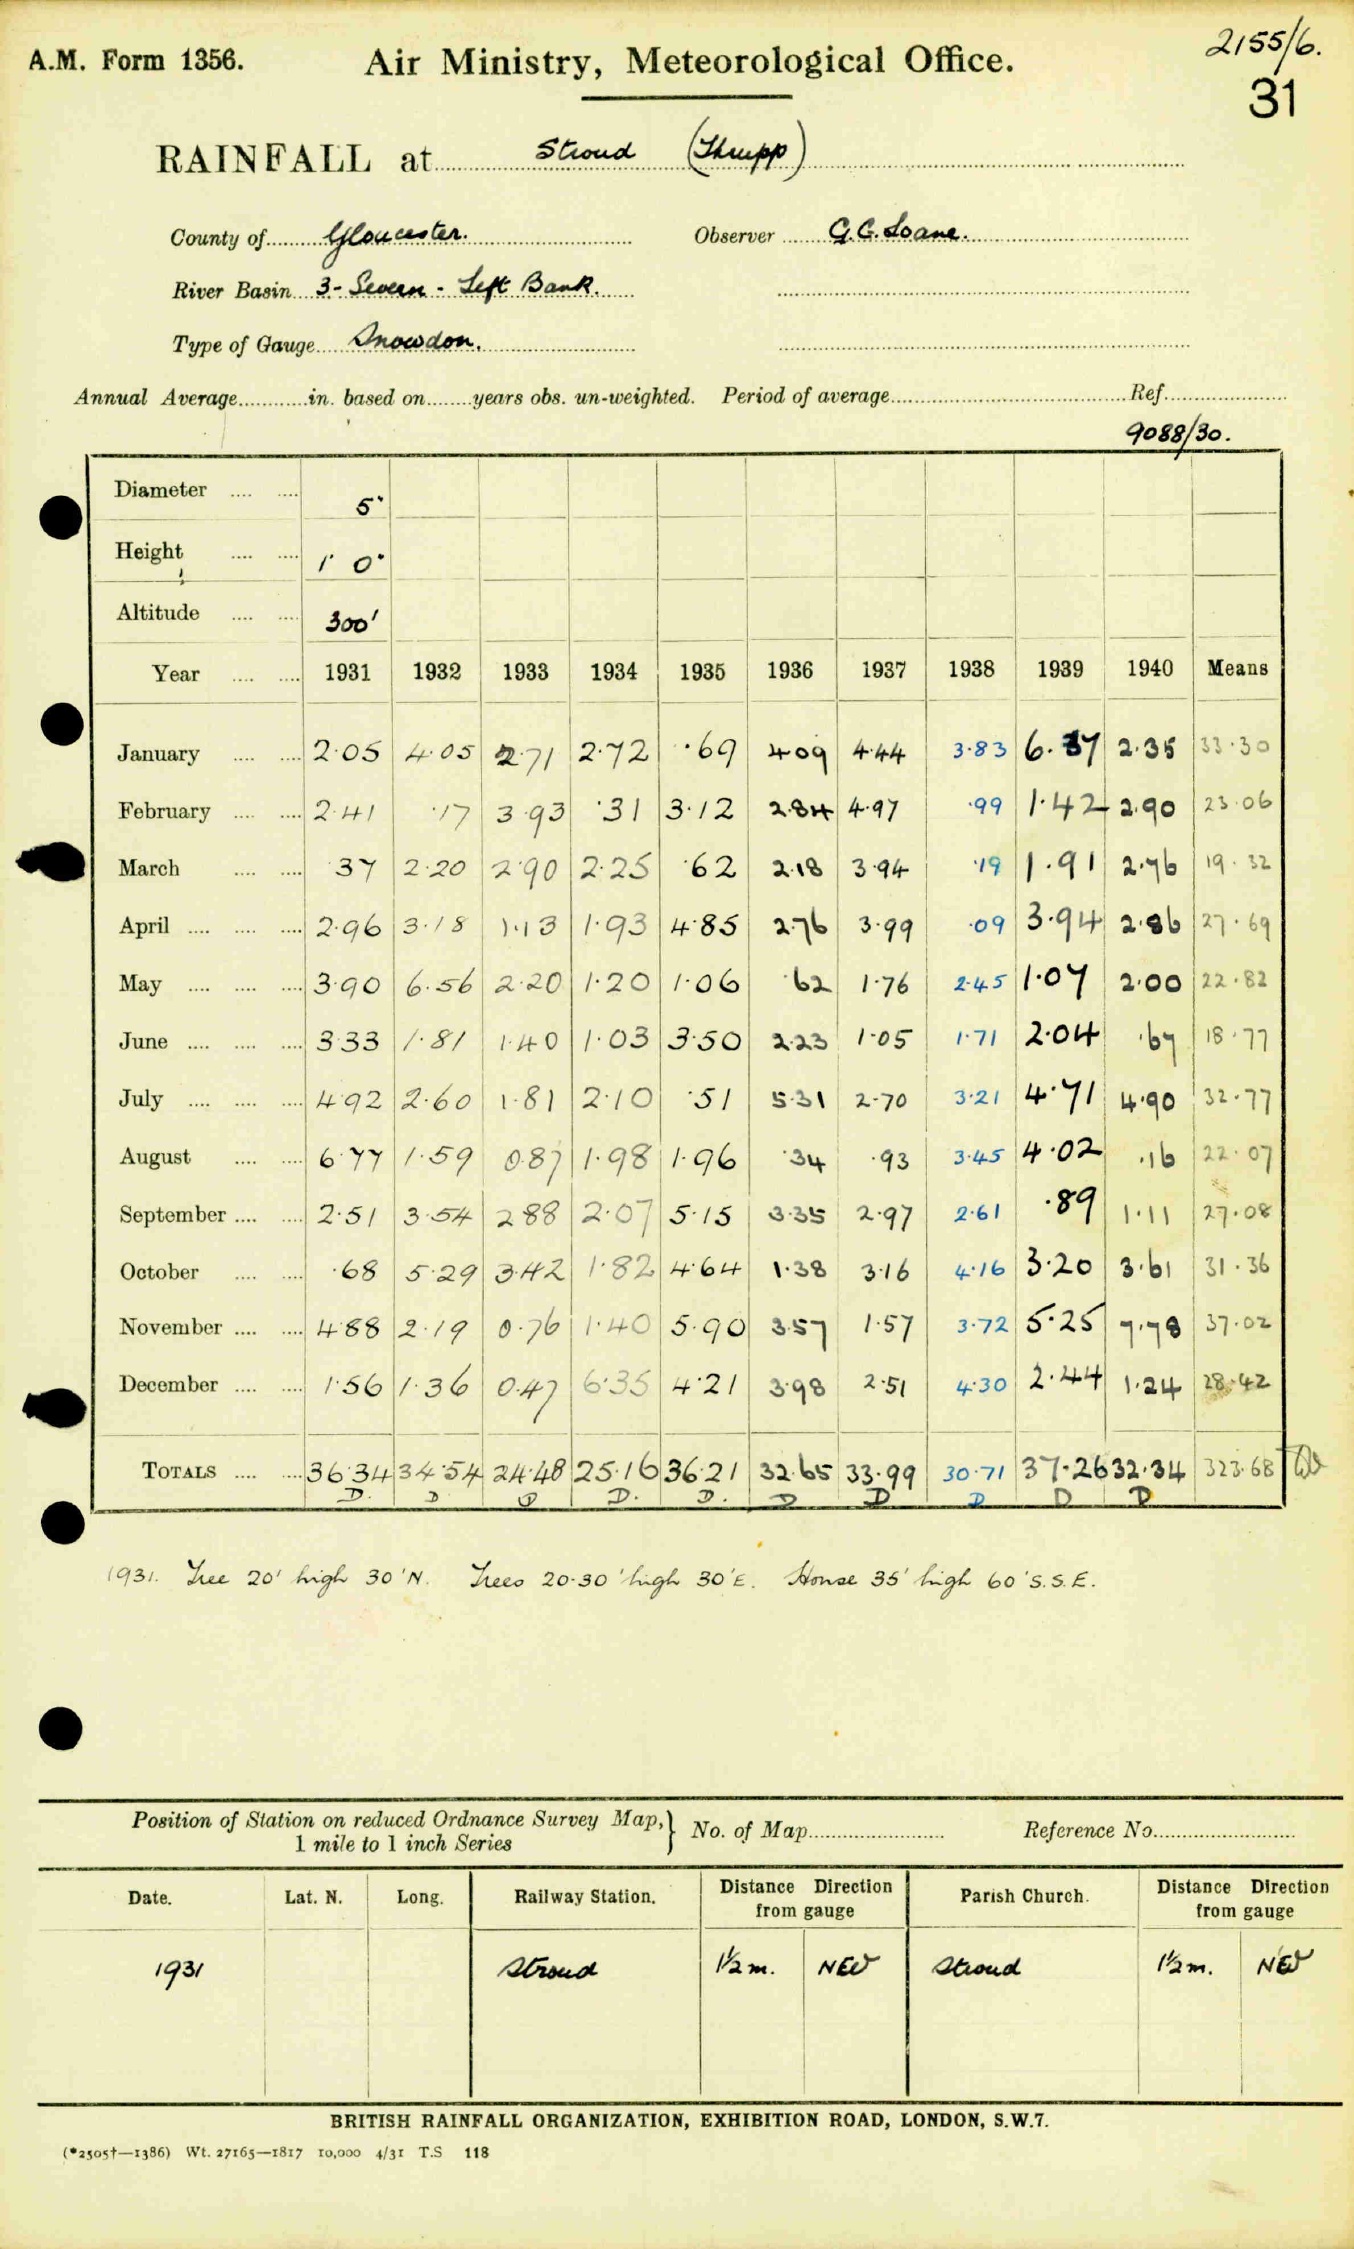 2155/6.
31
A.M. Form 1356.
Air Ministry, Meteorological Office.
RAINFALL at Stroud (Thrupp)
County of Gloucester. Observer G.C. Soane.
River Basin 3 - Severn - Left Bank.
Type of Gauge Snowdon.
Annual Average in. based on years obs. un-weighted. Period of average Ref.
9088/30.
Diameter 5"
Height 1' 0"
Altitude 300'
Year 1931 1932 1933 1934 1935 1936 1937 1938 1939 1940 Means
January 2.05 4.05 2.71 2.72 .69 4.09 4.44 3.83 6.37 2.35 33.30
February 2.41 .17 3.93 .31 3.12 2.84 4.97 .99 1.42 2.90 23.06
March .37 2.20 2.90 2.25 .62 2.18 3.94 .19 1.91 2.76 19.32
April 2.96 3.18 1.13 1.93 4.85 2.76 3.99 .09 3.94 2.86 27.69
May 3.90 6.56 2.20 1.20 1.06 .62 1.76 2.45 1.07 2.00 22.82
June 3.33 1.81 1.40 1.03 3.50 2.23 1.05 1.71 2.04 .67 18.77
July 4.92 2.60 1.81 2.10 .51 5.31 2.70 3.21 4.71 4.90 32.77
August 6.77 1.59 0.87 1.98 1.96 .34 .93 3.45 4.02 .16 22.07
September 2.51 3.54 2.88 2.07 5.15 3.35 2.97 2.61 .89 1.11 27.08
October .68 5.29 3.42 1.82 4.64 1.38 3.16 4.16 3.20 3.61 31.36
November 4.88 2.19 0.76 1.40 5.90 3.57 1.57 3.72 5.25 7.78 37.02
December 1.56 1.36 0.47 6.35 4.21 3.98 2.51 4.30 2.44 1.24 28.42
TOTALS 36.34 34.54 24.48 25.16 36.21 32.65 33.99 30.71 37.26 32.34 323.68
D. D D D. D. D D D D D
1931. Tree 20' high 30'N. Trees 20-30' high 30'E. House 35' high 60'S.S.E.
Position of Station on reduced Ordnance Survey Map, 1 mile to 1 inch Series } No. of Map Reference No.
Date. Lat. N. Long. Railway Station. Distance Direction from gauge Parish Church. Distance Direction from gauge
1931 Stroud 1½ m. NEW Stroud 1½ m. NEW
BRITISH RAINFALL ORGANIZATION, EXHIBITION ROAD, LONDON, S.W.7.
(*2505†—1386) Wt. 27165—1817 10,000 4/31 T.S 118